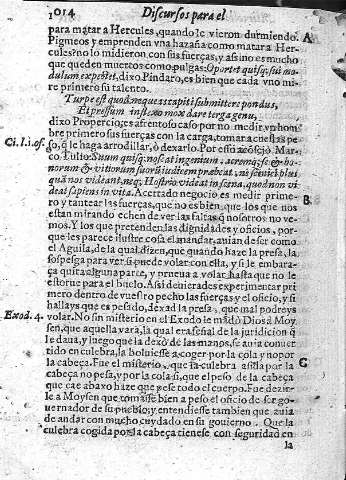 1014 Discursos para el
para matar a Hercules, quando le vieron durmiendo. A
Pigmeos y emprenden vna hazaña como matar a Her-
cules? no lo midieron con sus fuerças, y assi no es mucho
que queden muertos como pulgas. Oportet quisq; sui mo-
dulum expectet, dixo Pindaro, es bien que cada vno mi-
re primero su talento.
Turpe est quod nequeas capiti submittere pondus,
Et pressum inflexo mox dare terga genu,
dixo Propercio, es afrentoso caso por no medir vn hom-
bre primero sus fuerças con la carga, tomar acuestas pe-
Ci. l. 1. of. so, q̃ le haga arrodillar, ò dexarlo. Por esso acõsejò Mar-
co Tulio. Suum quisq; noscat ingenium, acremq; se & bo-
norum & vitiorum suorũ iudicem præbeat, ni scenici plus
quã nos videant, neq; Histrio videat in scena, quod non vi-
deat sapiens in vita. Acertado negocio es medir prime- B
ro y tantear las fuerças, que no es bien que los que nos
estan mirando echen de ver las faltas q̃ nosotros no ve-
mos. Y los que pretenden las dignidades y oficios, por-
que les parece ilustre cosa el mandar, auian de ser como
el Aguila, de la qual dizen, que quando haze la presa, la
sospesa para ver si puede volar con ella, y si le embara-
ça quita alguna parte, y prueua a volar hasta que no le
estorue para el buelo. Assi deuierades experimentar pri
mero dentro de vuestro pecho las fuerças y el oficio, y si
hallays que es pesado, dexad la presa, que mal podreys
Exod. 4. volar. No sin misterio en el Exodo le mãdò Dios à Moy
sen, que aquella vara, la qual era señal de la juridicion q̃
le daua, y luego que la dexò de las manos, se auia conuer
tido en culebra, la boluiesse a coger por la cola y no por
la cabeça. Fue el misterio, que la culebra asida por la C
cabeça no pesa, y por la cola si, que el peso de la cabeça
que cae abaxo haze que pese todo el cuerpo. Fue dezir
le a Moysen que tomasse bien a peso el oficio de ser go-
uernador de su pueblo, y entendiesse tambien que auia
de andar con mucho cuydado en su gouierno. Que la
culebra cogida por la cabeça tienese con seguridad en
la